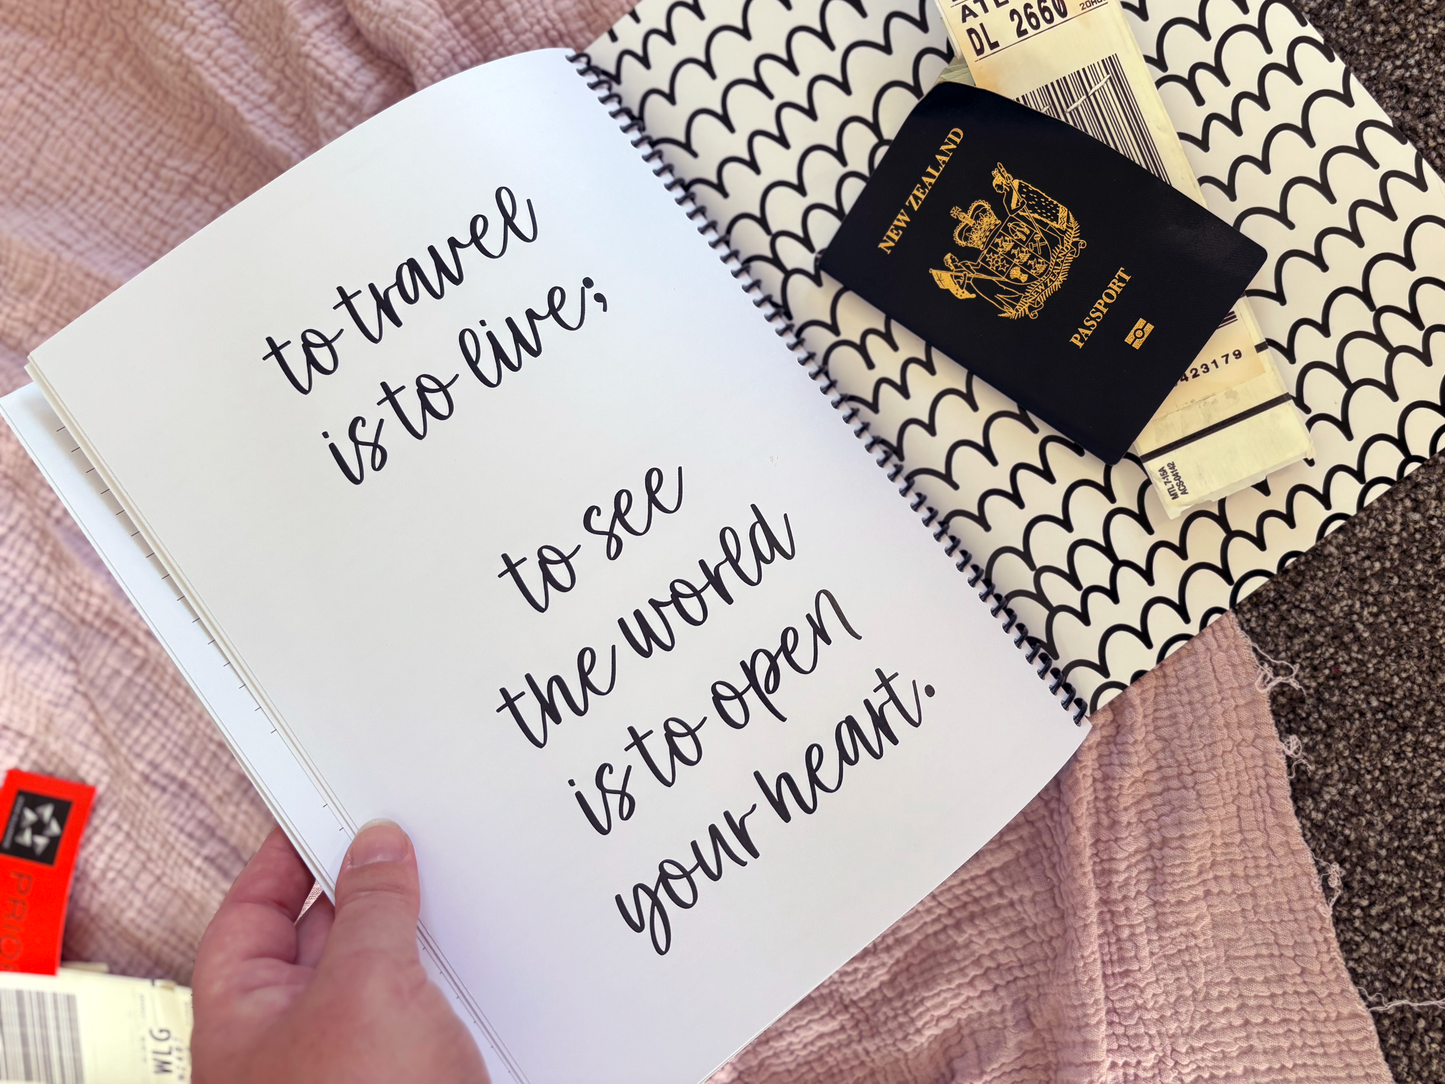 to travel
is to live;
to see
the world
is to open
your heart.
DL 2660
NEW ZEALAND
PASSPORT
423179
MTL7-15A
ACS-04142
WLG